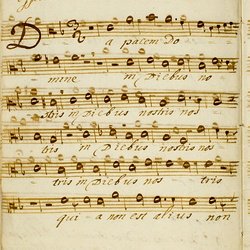 Da pacem Do
mine in Diebus no
stris in Diebus nostris nos
tris in Diebus nostris nos
tris in Diebus nos tris
qui-a non est alius non